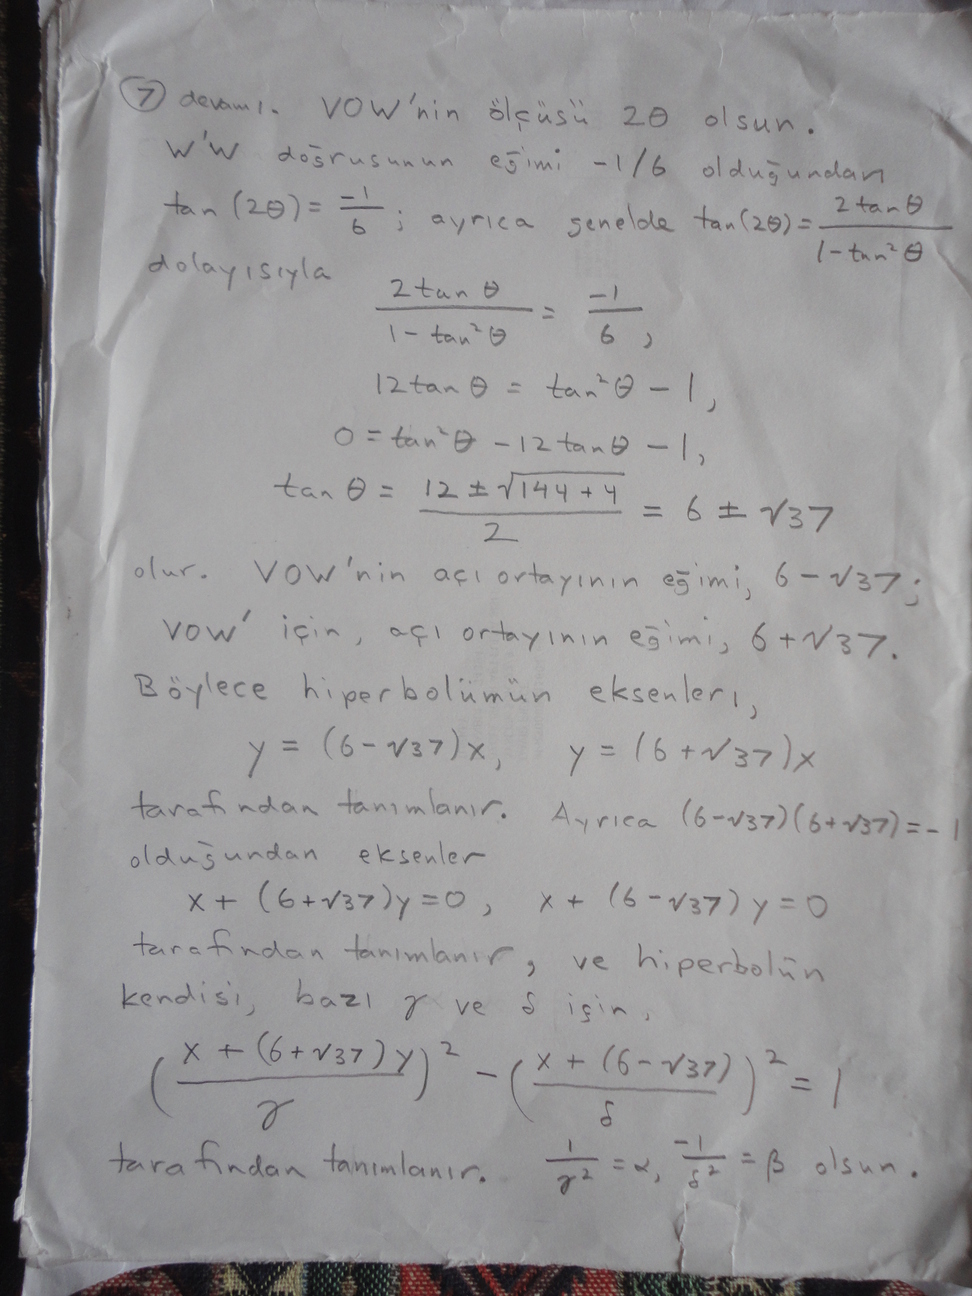 ⑦ devamı. VOW'nin ölçüsü 2θ olsun.
W'W doğrusunun eğimi -1/6 olduğundan
tan(2θ) = -1/6 ; ayrıca genelde tan(2θ) = 2tanθ/(1-tan²θ)
dolayısıyla
2tanθ/(1-tan²θ) = -1/6,
12tanθ = tan²θ - 1,
0 = tan²θ - 12tanθ - 1,
tanθ = (12 ± √(144+4))/2 = 6 ± √37
olur. VOW'nin açı ortayının eğimi, 6-√37;
VOW' için, açı ortayının eğimi, 6+√37.
Böylece hiperbolümün eksenleri,
y = (6-√37)x, y = (6+√37)x
tarafından tanımlanır. Ayrıca (6-√37)(6+√37) = -1
olduğundan eksenler
x + (6+√37)y = 0, x + (6-√37)y = 0
tarafından tanımlanır, ve hiperbolün
kendisi, bazı γ ve δ için,
((x + (6+√37)y)/γ)² - ((x + (6-√37))/δ)² = 1
tarafından tanımlanır. 1/γ² = α, -1/δ² = β olsun.